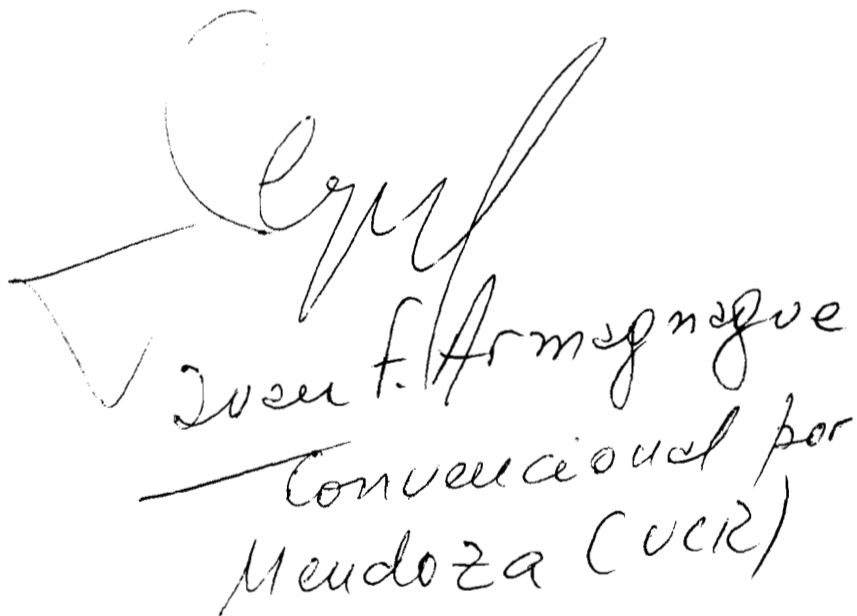 Juan F. Armagnague
Convencional por
Mendoza (UCR)